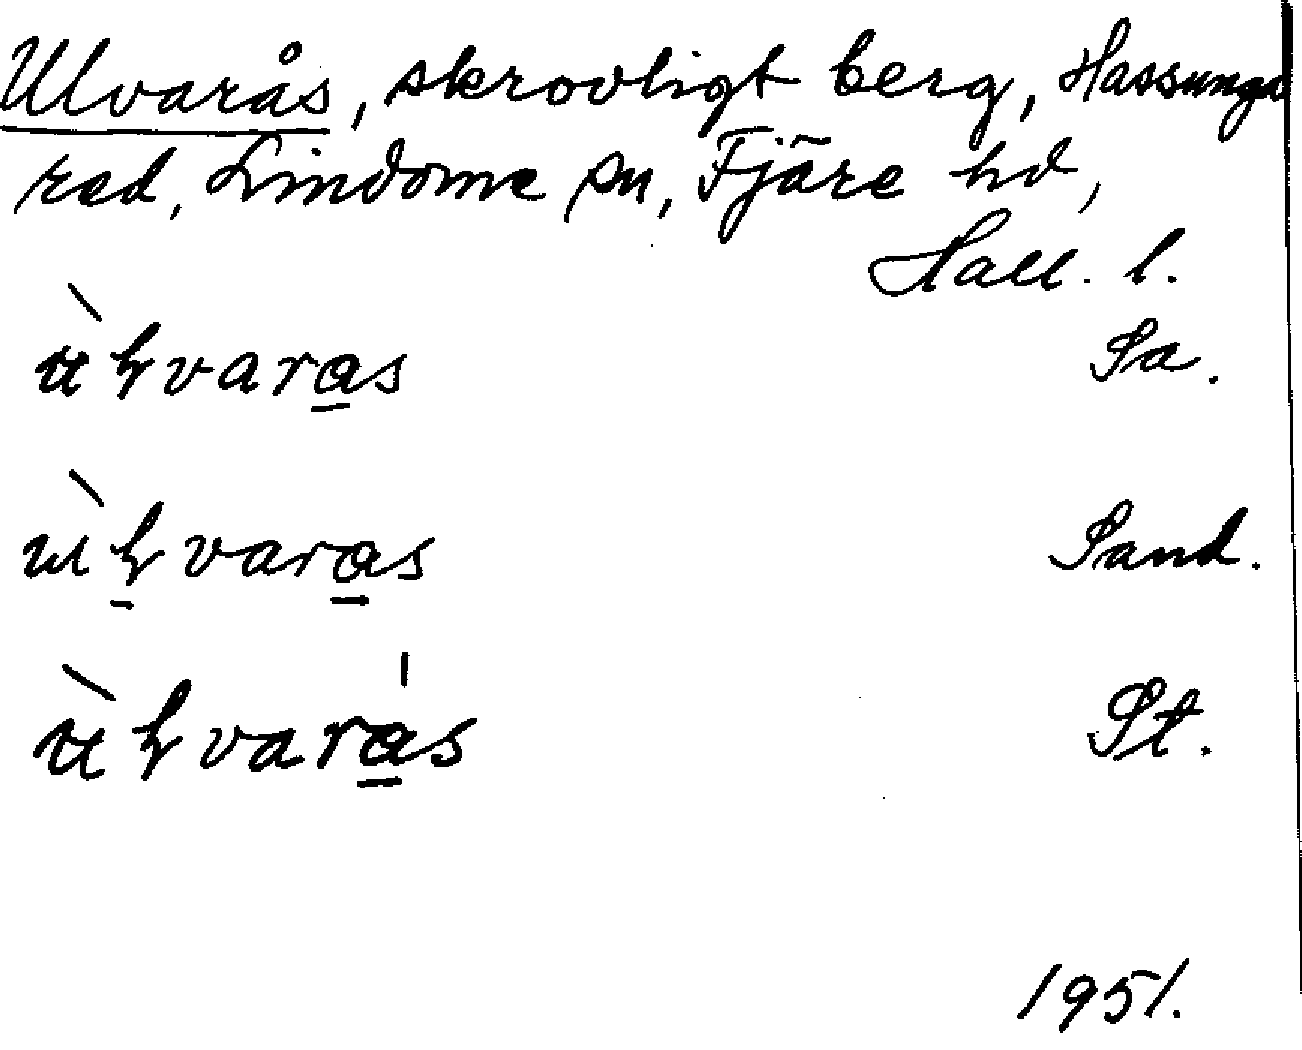 Ulvarås, skrovligt berg, Hassunga
red, Lindome sn, Fjäre hd,
Hall. l.
ùɫvaras Sa.
ùɫvaras Sand.
ùɫvarás St.
1951.